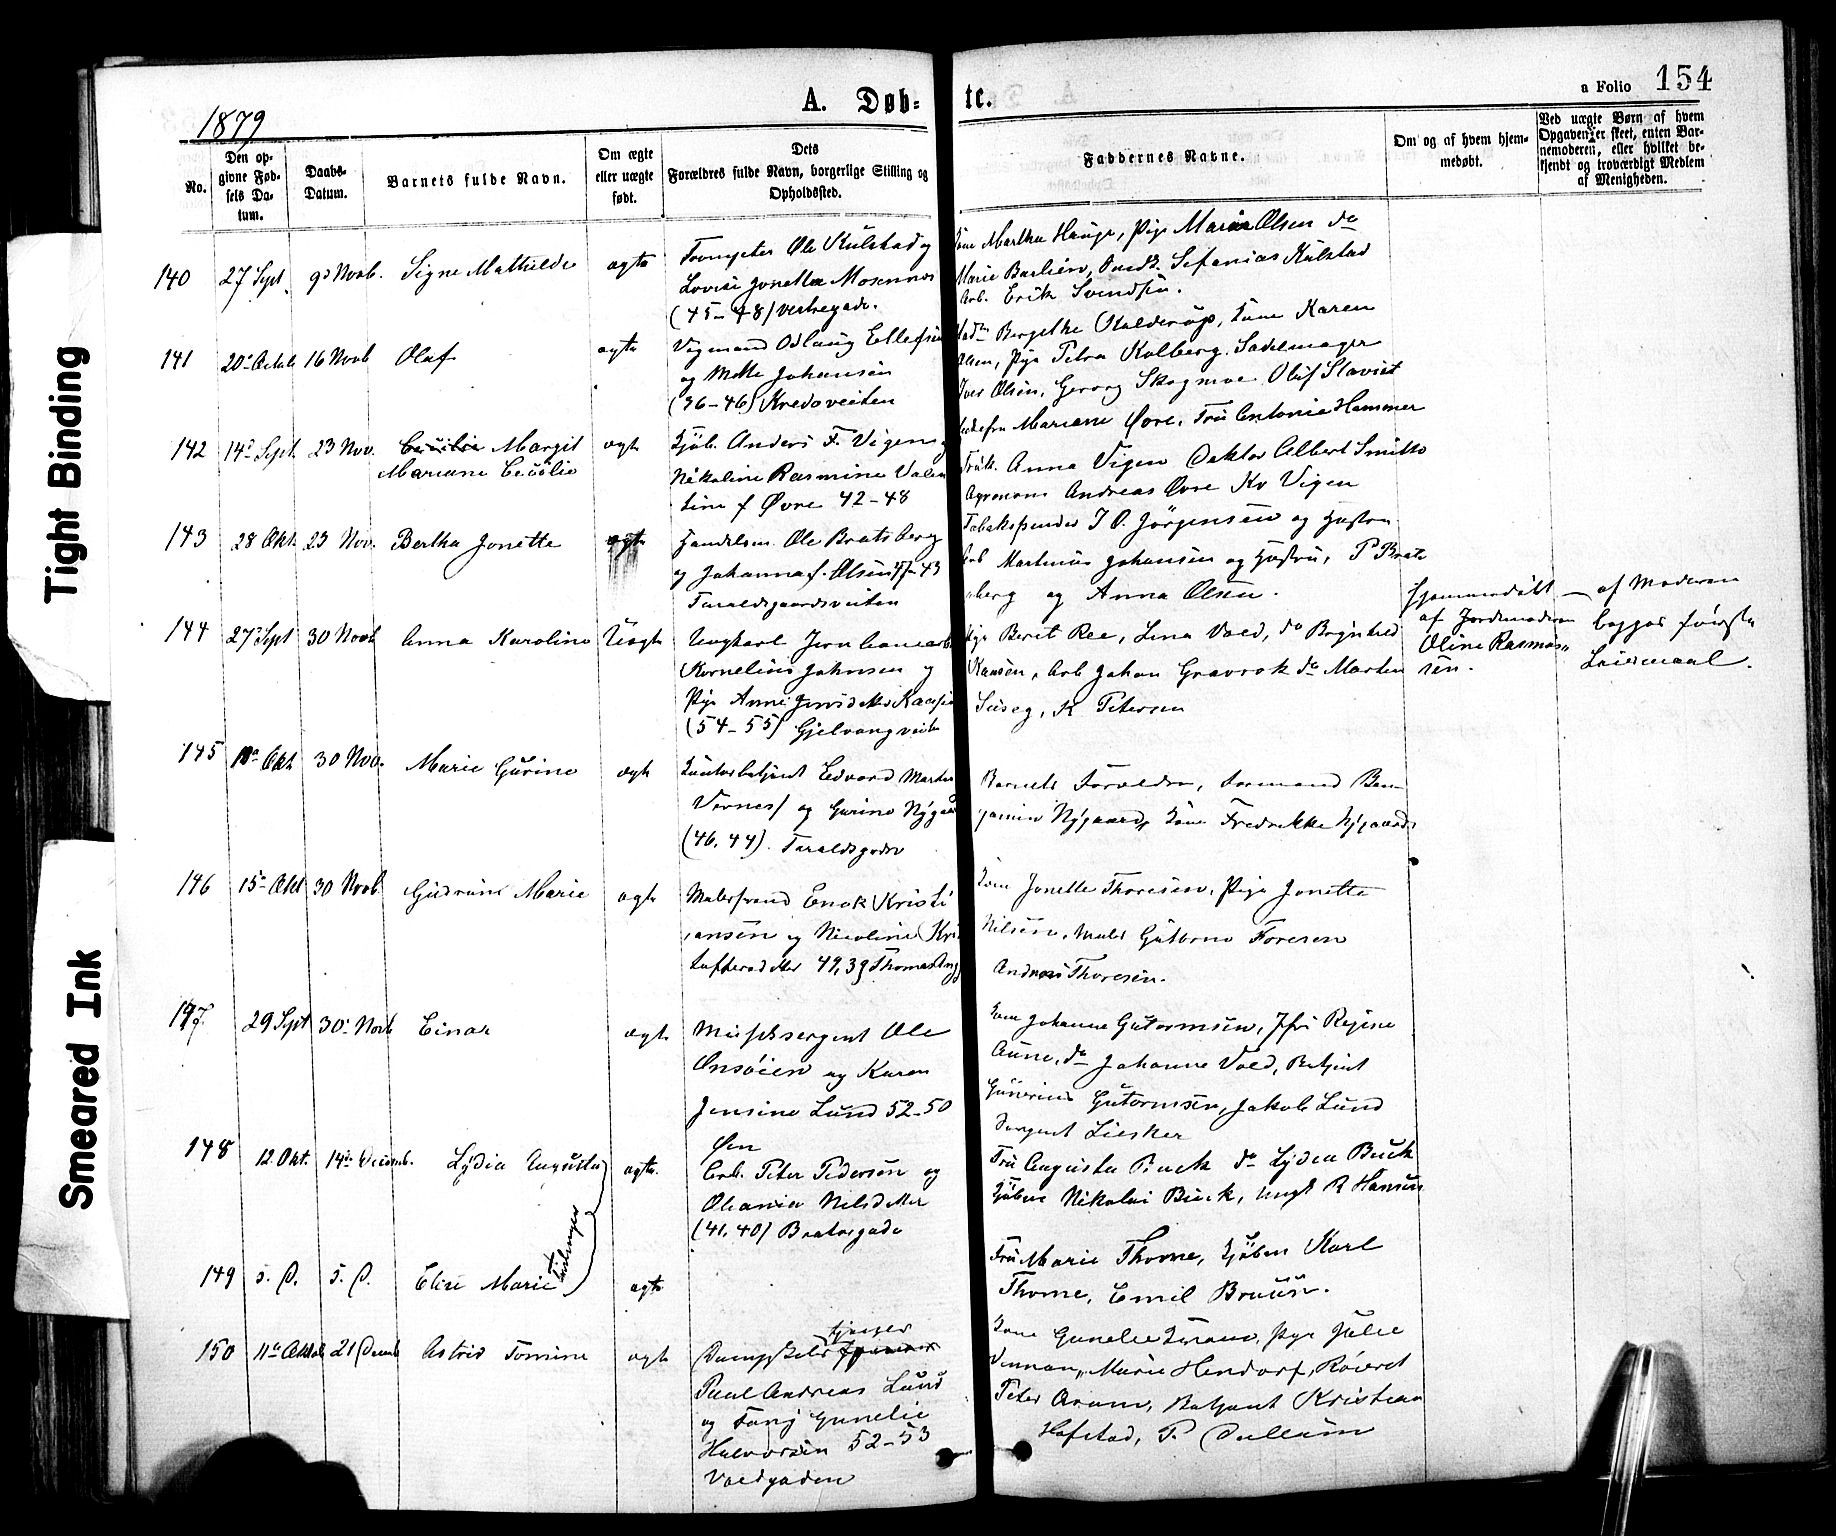 1879
A. Døb- te.
a Folio 154
No.
Den opgivne Fødsels Datum.
Daabs-Datum.
Barnets fulde Navn.
Om ægte eller uægte født.
Dets Forældres fulde Navn, borgerlige Stilling og Opholdssted.
Faddernes Navne.
Om og af hvem hjemmedøbt.
Ved uægte Børn af hvem Opgaven er skeet, enten Barnemoderen, eller hvilket bekjendt og troværdigt Medlem af Menigheden.
140 27 Sept. 9d Novb. Signe Mathilde ægte
Trompeter Ole Kulstad og
Lovise Jonetta Mosennes
(45-48) Vestregade.
Kone Martha Hauge, Pige Maria Olsen do
Marie Barlien, Sefanias Kulstad
Arb. Erik Svendsen.
141 20de Octob 16 Novb Olaf ægte
Vognmand Odlaug Ellefsen
og Mette Johansen
(36-46) Kredsveiten
Bergethe Kalderup, Kone Karen
Olsen, Pige Petra Kolberg. Sadelmager
Iver Olsen, Georg Skogmoe. Oluf Slavist
142 14de Sept. 23 Nov. Cecilie Margit
Mariane Cecilie ægte
Kjøb. Anders F. Vigen og
Nikoline Rasmine Valen
tine f Øvre 42-48
Mariane Øvre, Fru Antonie Hammer
Frøk. Anna Vigen Doktor Albert Smitto
Agronom Andreas Øvre Kv Vigen
143 28 Okt. 23 Nov. Bertha Jonette ægte
Handelsm. Ole Bratsberg
og Johanna f. Olsen 47-43
Taraldsgaardsveiten
Tobakspinder J O. Jørgensen og Hustru
Arb Martinus Johansen og Hustru, P Brats
berg og Anna Olsen.
144 27de Sept 30 Novb Anna Karoline Uægte
Ungkarl Jernbanearb
Kornelius Johnsen og
Pige Anne Jensdatter
(54-55) Gjelvangveita
Pige Beret Ree, Lina Vold, do Brynhild
Hansen, Arb Johan Gravrok do Morten
K Petersen
Hjemmedøbt
af Jordemoderen
Oline Rasmus-
sen.
af Moderen
begges første
Leiermaal.
145 Okt. 30 Nov. Marie Gurine ægte
Kontorbetjent Edvard Martin
Vernes og Gurine Nygaard
(46, 44). Taraldsgader
Barnets Forældre, Formand Ben
jamin Nygaard, Kone Fredrikke Nygaard
146 15de Okt 30 Novb. Gudrun Marie ægte
Malersvend Enok Kristi
ansen og Nicoline Kri
stoffersdatter 49, 39 Thomas Ang
Kone Jonette Thoresen, Pige Jonette
Nilsen, Maler Gutorm Foresen
Andreas Thoresen.
147. 29 Sept 30te Novb Einar ægte
Musiksergent Ole
Onsøien og Karen
Jensine Lund 52-50
Øen
Kone Johanne Gutormsen, Jfr Regine
Aune, do Johanne Vold, Betjent
Gunerius Gutormsen, Jakob Lund
Sergent Liesker
148 12. Okt. 14de Decemb. Lydia Augusta ægte.
Arb. Peter Pedersen og
Oleania Nilsdatter
(41, 40) Bratsegade
Fru Augusta Buck do Lydia Buck
Kjøbm Nikolai Buck, Ungk R Hansen
Tvillinger
149 s. D. s. D. Elise Marie ægte
Fru Marie Thorne, Kjøbm Karl
Thorne, Emil Bruun.
150 11te Oktob 21 Decemb Astrid Tomine ægte
kjøger
Dampskibs
Paul Andreas Lund
og Fanj Gunelie
Halvorsen 52-53
Voldgaden
Kone Gunelie Aram, Pige Julie
Vennan, Marie Hendorf, Røieret
Peter Aram, Betjent Kristian
Hofstad, P. Dullum
Tight Binding
Smeared Ink